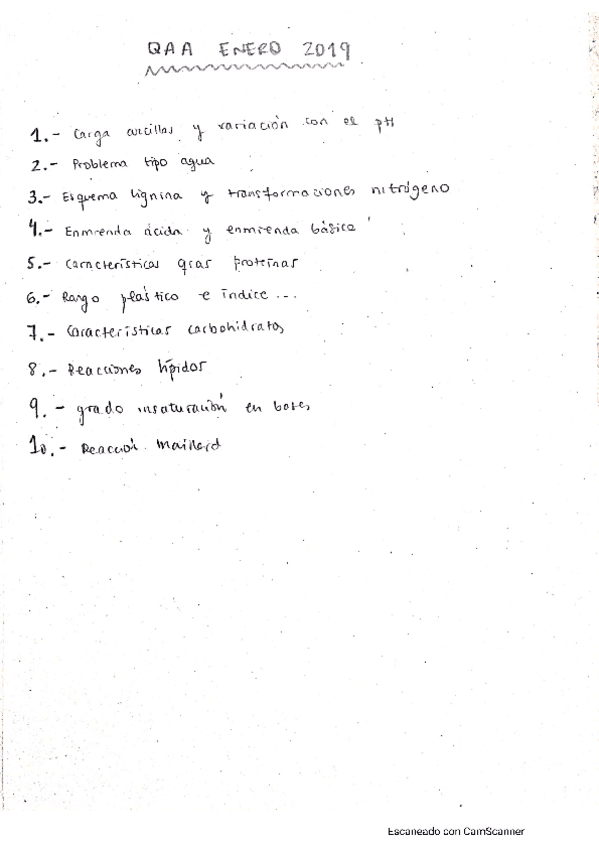 QAA ENERO 2019
1.- Carga arcillas y variación con el pH
2.- Problema tipo agua
3.- Esquema lignina y transformaciones nitrógeno
4.- Enmienda ácida y enmienda básica
5.- Características qcas proteínas
6.- Rango plástico e índice...
7.- Características carbohidratos
8.- Reacciones lípidos
9.- grado insaturación en bases
10.- Reacción Maillard
Escaneado con CamScanner